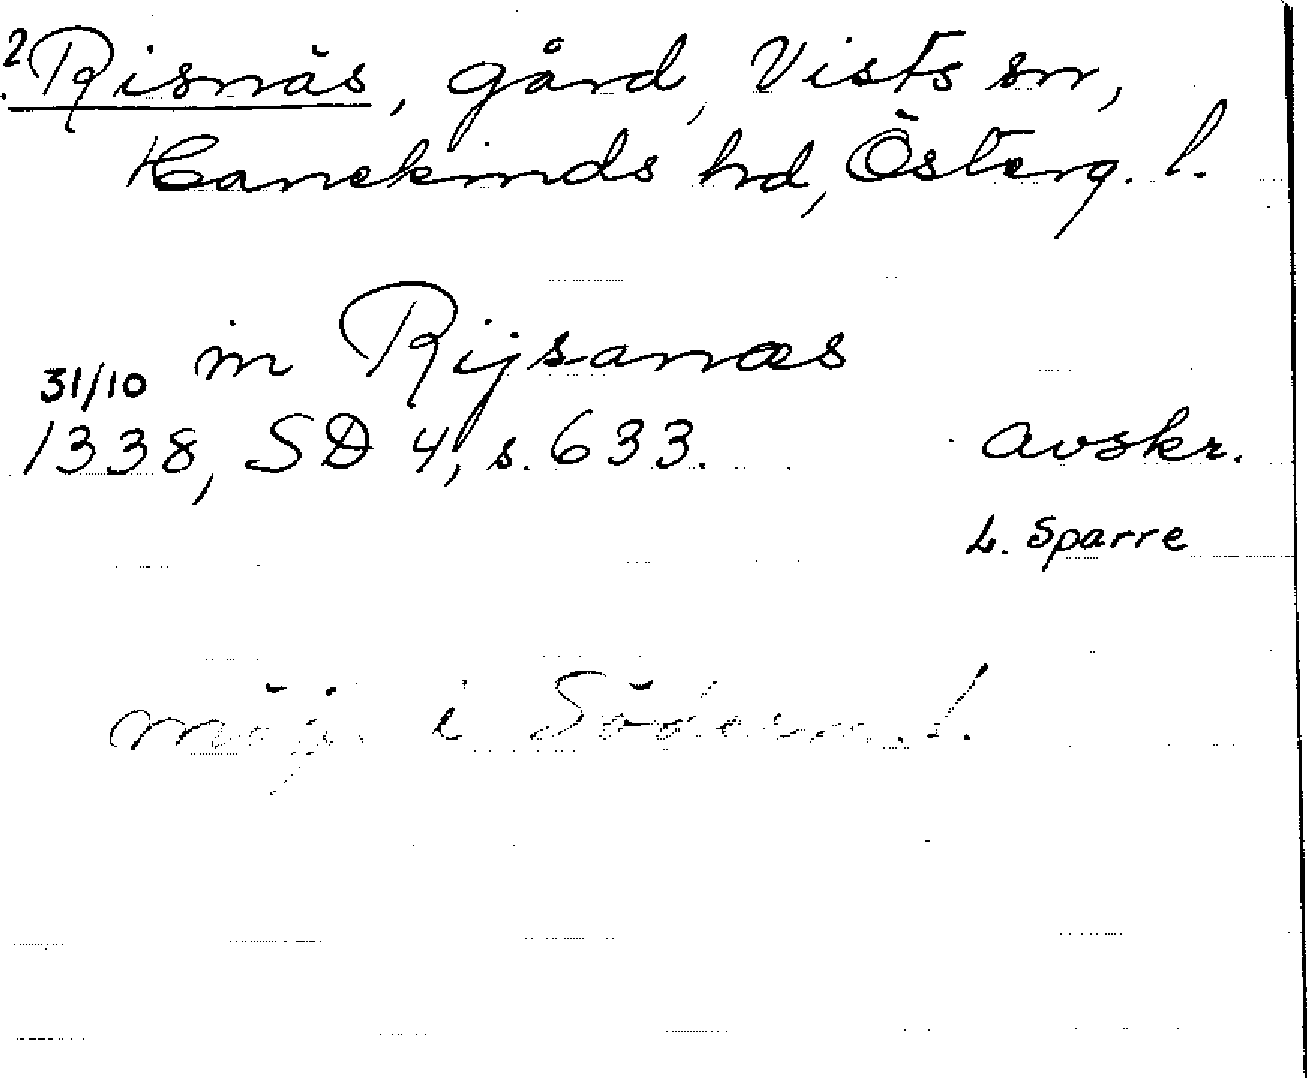 2 Risnäs, gård, Vists sn,
Hanekinds hd, Österg. l.
in Rijsanæs
31/10
1338, SD 4, s. 633. avskr.
L. Sparre
möjl. i Söderm. l.